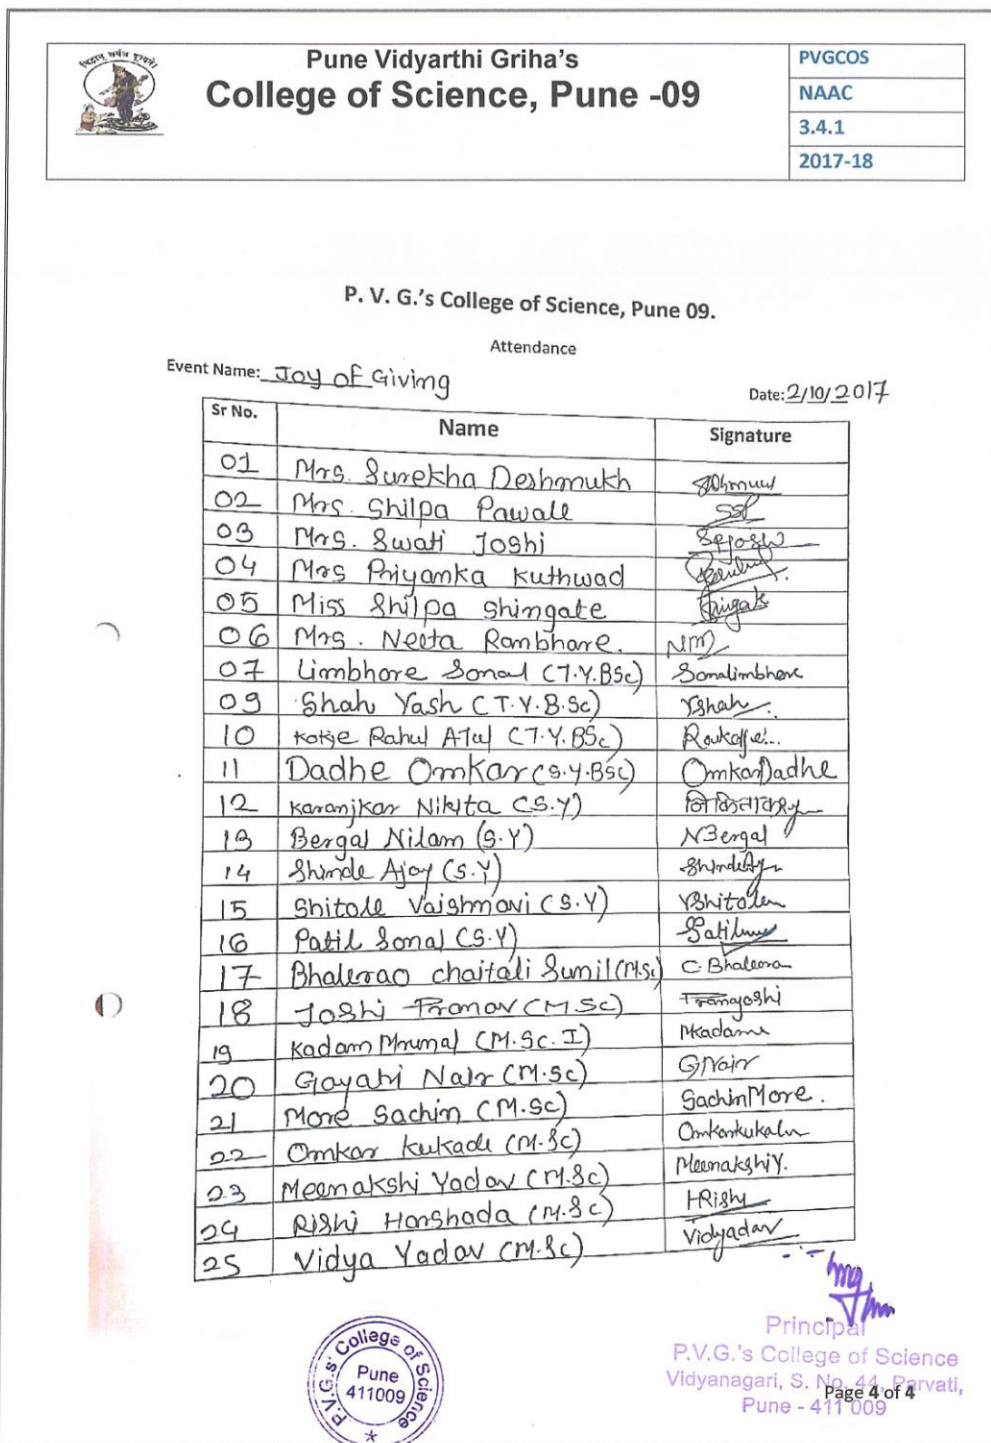 विद्वान् सर्वत्र पूज्यते
Pune Vidyarthi Griha's
College of Science, Pune -09
PVGCOS
NAAC
3.4.1
2017-18
P. V. G.'s College of Science, Pune 09.
Attendance
Event Name: Joy of Giving
Date: 2/10/2017
Sr No. Name Signature
01 Mrs. Surekha Deshmukh
02 Mrs. Shilpa Pawale SSP
03 Mrs. Swati Joshi SPJoshi
04 Mrs Priyanka Kuthwad
05 Miss Shilpa Shingate Shingate
06 Mrs. Neeta Rambhare.
07 Limbhore Sonal (T.Y.BSc) Sonalimbhore
09 Shah Yash (T.Y.B.Sc) YShah
10 Kokje Rahul Atul (T.Y.BSc)
11 Dadhe Omkar (S.Y.BSc) OmkarDadhe
12 Karanjkar Nikita (S.Y)
13 Bergal Nilam (S.Y) NBergal
14 Shinde Ajay (S.Y) ShindeAj
15 Shitole Vaishnavi (S.Y) VShitole
16 Patil Sonal (S.Y)
17 Bhalerao Chaitali Sunil (M.Sc) C. Bhalerao
18 Joshi Pranav (M.Sc) Pranavjoshi
19 Kadam Mrunal (M.Sc. I) Mkadam
20 Gayatri Nair (M.Sc) GNair
21 More Sachin (M.Sc) SachinMore.
22 Omkar Kukade (M.Sc)
23 Meenakshi Yadav (M.Sc) MeenakshiY.
24 Rishi Harshada (M.Sc) HRishi
25 Vidya Yadav (M.Sc) Vidyadav
P.V.G.s' College of Science
Pune
411009
Principal
P.V.G.'s College of Science
Vidyanagari, S. No. 44, Parvati,
Page 4 of 4
Pune - 411 009